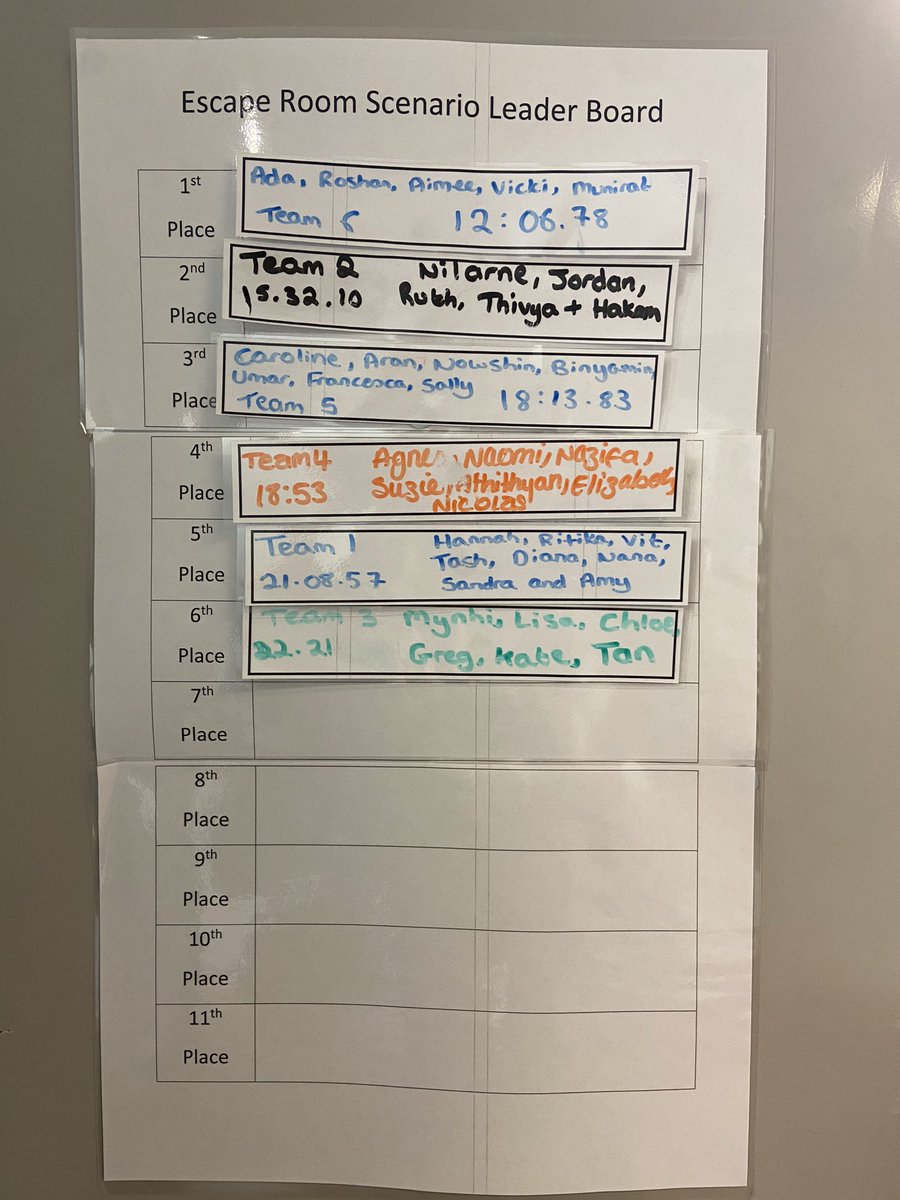 Escape Room Scenario Leader Board
1st Place
Ada, Roshan, Aimee, Vicki, Munirat
Team 6 12:06.78
2nd Place
Team 2 Nilarne, Jordan,
15.32.10 Ruth, Thivya + Hakam
3rd Place
Caroline, Aran, Nowshin, Binyamin,
Umar, Francesca, Sally
Team 5 18:13.83
4th Place
Team 4 Naomi, Nazifa,
18:53 Suzie, Athithyan, Elizabeth,
Nicolas
5th Place
Team 1 Hannah, Ritika, Vit,
Tash, Diana, Nana,
21.08.57 Sandra and Amy
6th Place
Team 3 Mynhi, Lisa, Chloe,
22.21 Greg, Kate, Tan
7th Place
8th Place
9th Place
10th Place
11th Place